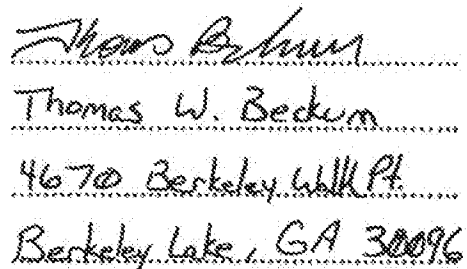 Thomas Beckum
Thomas W. Beckum
4670 Berkeley Walk Pt.
Berkeley Lake, GA 30096